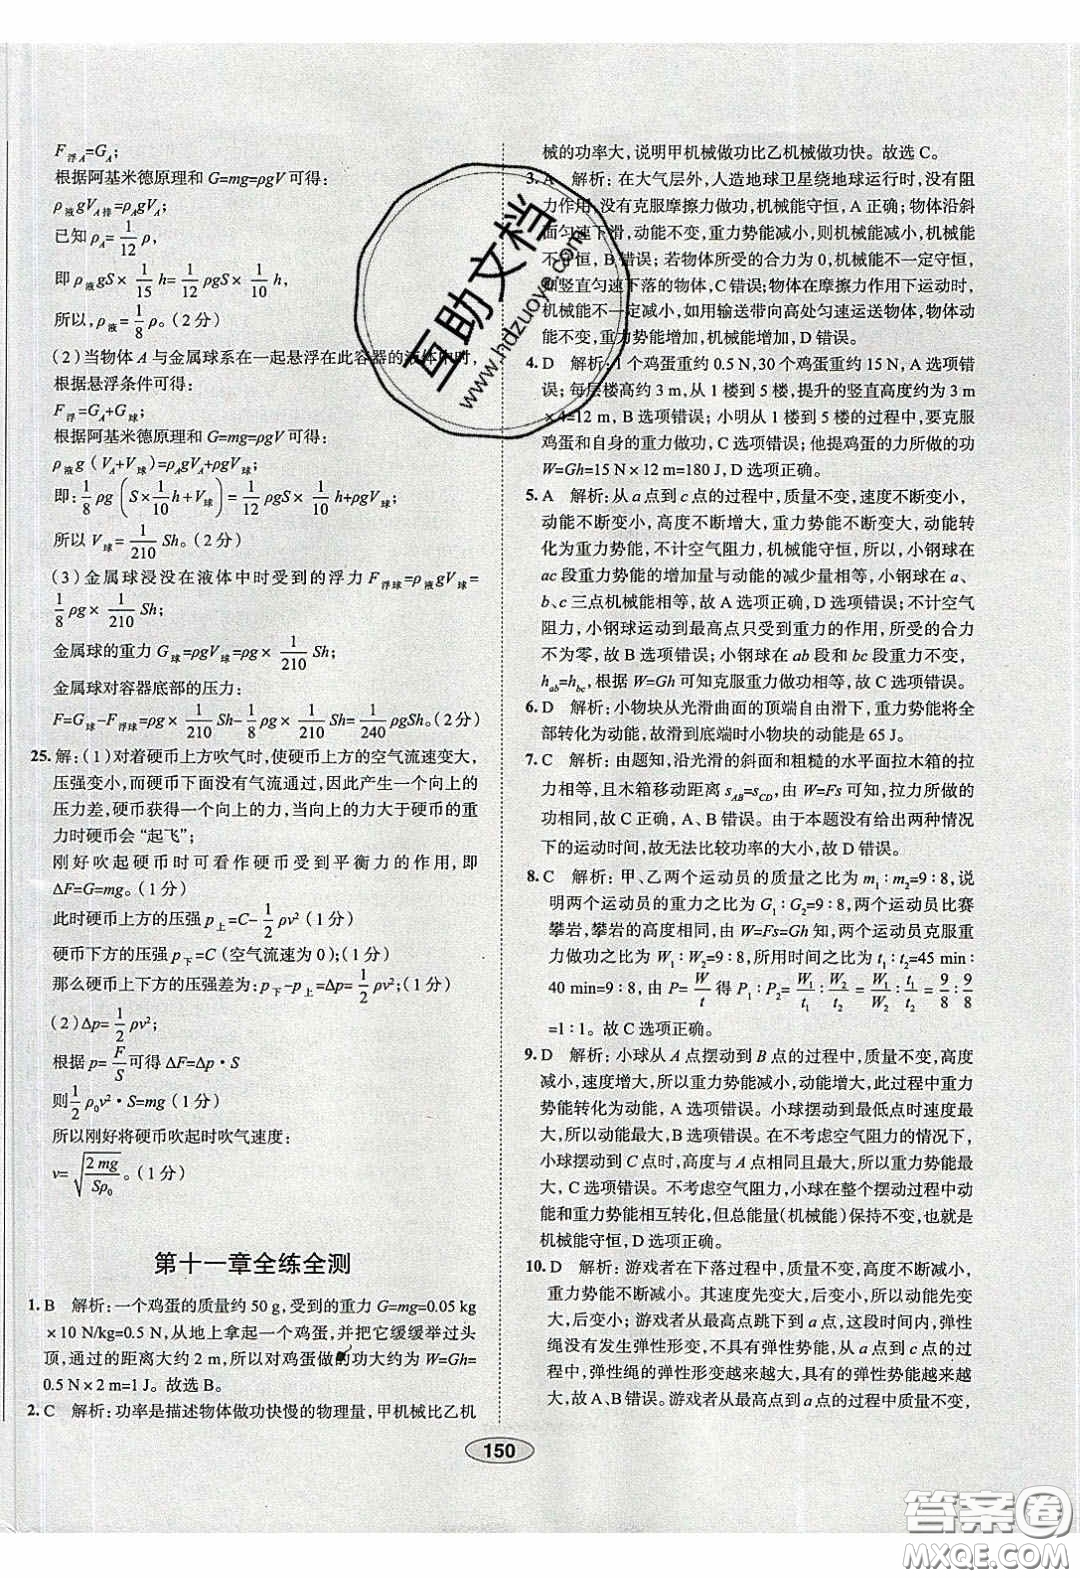 F浮A=GA;
根据阿基米德原理和 G=mg=ρgV 可得:
ρ液gVA排=ρAgVA;
已知 ρA=1/12 ρ,
即 ρ液gS×1/15 h=1/12 ρgS×1/10 h,
所以,ρ液=1/8 ρ。(2分)
(2)当物体 A 与金属球系在一起悬浮在此容器的液体中时,
根据悬浮条件可得:
F浮=GA+G球;
根据阿基米德原理和 G=mg=ρgV 可得:
ρ液g(VA+V球)=ρAgVA+ρgV球;
即:1/8 ρg(S×1/10 h+V球)=1/12 ρgS×1/10 h+ρgV球;
所以 V球=1/210 Sh。(2分)
(3)金属球浸没在液体中时受到的浮力 F浮球=ρ液gV球=
1/8 ρg×1/210 Sh;
金属球的重力 G球=ρgV球=ρg×1/210 Sh;
金属球对容器底部的压力:
F=G球-F浮球=ρg×1/210 Sh-1/8 ρg×1/210 Sh=1/240 ρgSh。(2分)
25.解:(1)对着硬币上方吹气时,使硬币上方的空气流速变大,
压强变小,而硬币下面没有气流通过,因此产生一个向上的
压力差,硬币获得一个向上的力,当向上的力大于硬币的重
力时硬币会“起飞”;
刚好吹起硬币时可看作硬币受到平衡力的作用,即
ΔF=G=mg。(1分)
此时硬币上方的压强 p上=C-1/2 ρv²(1分)
硬币下方的压强 p下=C(空气流速为0);(1分)
那么硬币上下方的压强差为:p下-p上=Δp=1/2 ρv²(1分)
(2)Δp=1/2 ρv²;
根据 p=F/S 可得 ΔF=Δp·S
则 1/2 ρ₀v²·S=mg(1分)
所以刚好将硬币吹起时吹气速度:
v=√(2mg/Sρ₀)。(1分)
第十一章全练全测
1. B 解析:一个鸡蛋的质量约50 g,受到的重力 G=mg=0.05 kg
×10 N/kg=0.5 N,从地上拿起一个鸡蛋,并把它缓缓举过头
顶,通过的距离大约2 m,所以对鸡蛋做的功大约为 W=Gh=
0.5 N×2 m=1 J。故选B。
2. C 解析:功率是描述物体做功快慢的物理量,甲机械比乙机
械的功率大,说明甲机械做功比乙机械做功快。故选C。
3. A 解析:在大气层外,人造地球卫星绕地球运行时,没有阻
力作用,没有克服摩擦力做功,机械能守恒,A正确;物体沿斜
面匀速下滑,动能不变,重力势能减小,则机械能减小,机械能
不守恒,B错误;若物体所受的合力为0,机械能不一定守恒,
如竖直匀速下落的物体,C错误;物体在力作用下运动时,
机械能不一定减小,如用输送带向高处匀速运送物体,物体动
能不变,重力势能增加,机械能增加,D错误。
4. D 解析:1个鸡蛋重约0.5 N,30个鸡蛋重约15 N,A选项错
误;每层楼高约3 m,从1楼到5楼,提升的竖直高度约为3 m
×4=12 m,B选项错误;小明从1楼到5楼的过程中,要克服
鸡蛋和自身的重力做功,C选项错误;他提鸡蛋的力所做的功
W=Gh=15 N×12 m=180 J,D选项正确。
5. A 解析:从a点到c点的过程中,质量不变,速度不断变小,
动能不断变小,高度不断增大,重力势能不断变大,动能转
化为重力势能,不计空气阻力,机械能守恒,所以,小钢球在
ac段重力势能的增加量与动能的减少量相等,小钢球在a、
b、c三点机械能相等,故A选项正确,D选项错误;不计空气
阻力,小钢球运动到最高点只受到重力的作用,所受的合力
不为零,故B选项错误;小钢球在ab段和bc段重力不变,
hab=hbc,根据 W=Gh 可知克服重力做功相等,故C选项错误。
6. D 解析:小物块从光滑曲面的顶端自由滑下,重力势能将
全部转化为动能,故滑到底端时小物块的动能是65 J。
7. C 解析:由题知,沿光滑的斜面和粗糙的水平面拉木箱的拉
力相等,且木箱移动距离 sAB=sCD,由 W=Fs 可知,拉力所做的
功相同,故C正确,A、B错误。由于本题没有给出两种情况
下的运动时间,故无法比较功率的大小,故D错误。
8. C 解析:甲、乙两个运动员的质量之比为 m₁∶m₂=9∶8,说
明两个运动员的重力之比为 G₁∶G₂=9∶8,两个运动员比赛
攀岩,攀岩的高度相同,由 W=Fs=Gh 知,两个运动员克服重
力做功之比为 W₁∶W₂=9∶8,所用时间之比为 t₁∶t₂=45 min∶
40 min=9∶8,由 P=W/t 得 P₁∶P₂=W₁/t₁∶W₂/t₂=W₁/W₂∶t₁/t₂=9/8∶9/8
=1∶1。故C选项正确。
9. D 解析:小球从A点摆动到B点的过程中,质量不变,高度
减小,速度增大,所以重力势能减小,动能增大,此过程中重力
势能转化为动能,A选项错误。小球摆动到最低点时速度最
大,所以动能最大,B选项错误。在不考虑空气阻力的情况下,
小球摆动到C点时,高度与A点相同且最大,所以重力势能最
大,C选项错误。不考虑空气阻力,小球在整个摆动过程中动
能和重力势能相互转化,但总能量(机械能)保持不变,也就是
机械能守恒,D选项正确。
10. D 解析:游戏者在下落过程中,质量不变,高度不断减小,
重力势能不断减小。其速度先变大,后变小,所以动能先变
大,后变小;游戏者从最高点跳下到a点,这段时间内,弹性
绳没有发生弹性形变,不具有弹性势能,从a点到c点的过
程中,弹性绳的弹性形变越来越大,弹性势能越来越大,
故A、B错误。游戏者从最高点跳下到a点,弹性势能不变,
150
互助文档
www.hdzuoye.com
答案圈
MXQE.COM